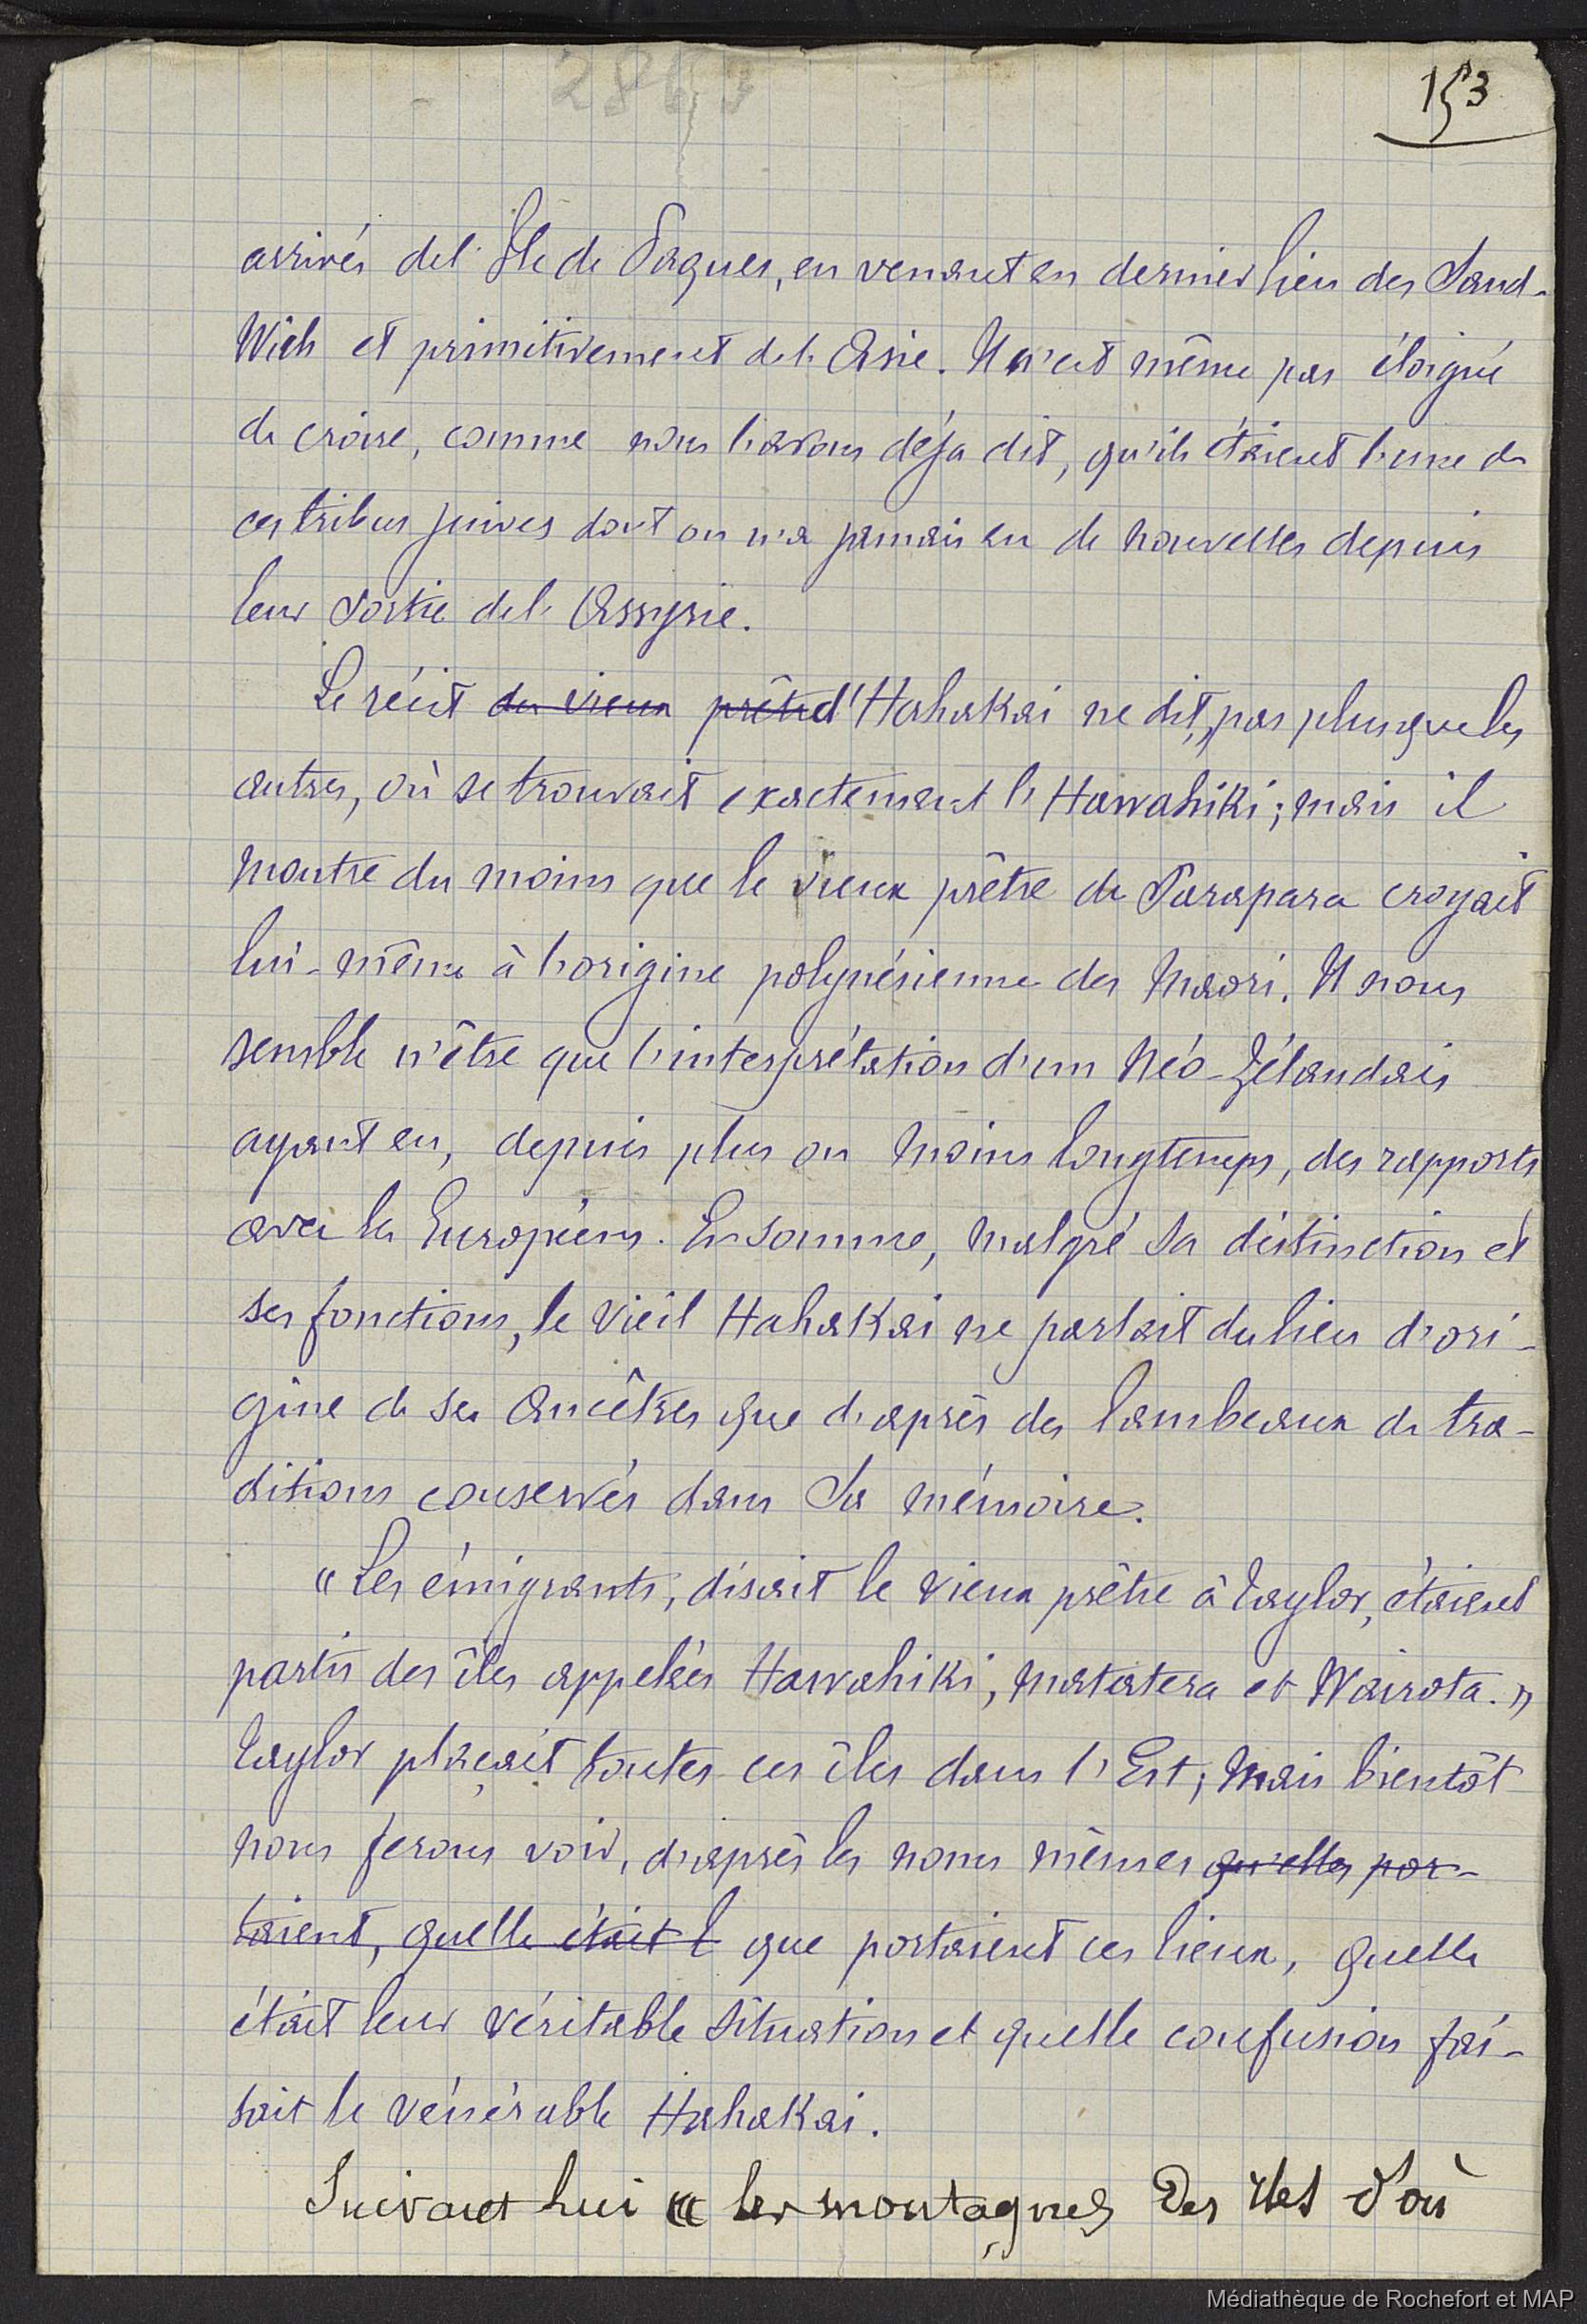 153
arrivés de l'Ile de Pâques, en venant en dernier lieu des Sand-
Wich et primitivement de l'Asie. Il n'est même pas éloigné
de croire, comme nous l'avons déja dit, qu'ils étaient l'une de
ces tribus juives dont on n'a jamais eu de nouvelles depuis
leur sortie de l'Assyrie.
Le récit du vieux prêtre d'Hahakai ne dit, pas plus que les
autres, où se trouvait exactement l'Hawahiki; mais il
montre du moins que le vieux prêtre de Parapara croyait
lui-même à l'origine polynésienne des Maori. Il nous
semble n'être que l'interprétation d'un Néo-Zélandais
ayant eu, depuis plus ou moins longtemps, des rapports
avec les Européens. En somme, malgré sa distinction et
ses fonctions, le vieil Hahakai ne parlait du lieu d'ori-
gine de ses ancêtres que d'après des lambeaux de tra-
ditions conservés dans sa mémoire.
« Les émigrants, disait le vieux prêtre à Taylor, étaient
partis des îles appelées Hawahiki, Matatera et Wairota. »
Taylor plaçait toutes ces îles dans l'Est; mais bientôt
nous ferons voir, d'après les noms mêmes qu'elles por-
taient, quelle était l que portaient ces lieux, quelle
était leur véritable situation et quelle confusion fai-
sait le vénérable Hahakai.
Suivant lui « les montagnes des îles d'où
Médiathèque de Rochefort et MAP